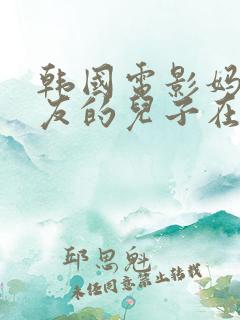 韩国雷影妈
友的兒子在
邱思魁
未经同意禁止转载